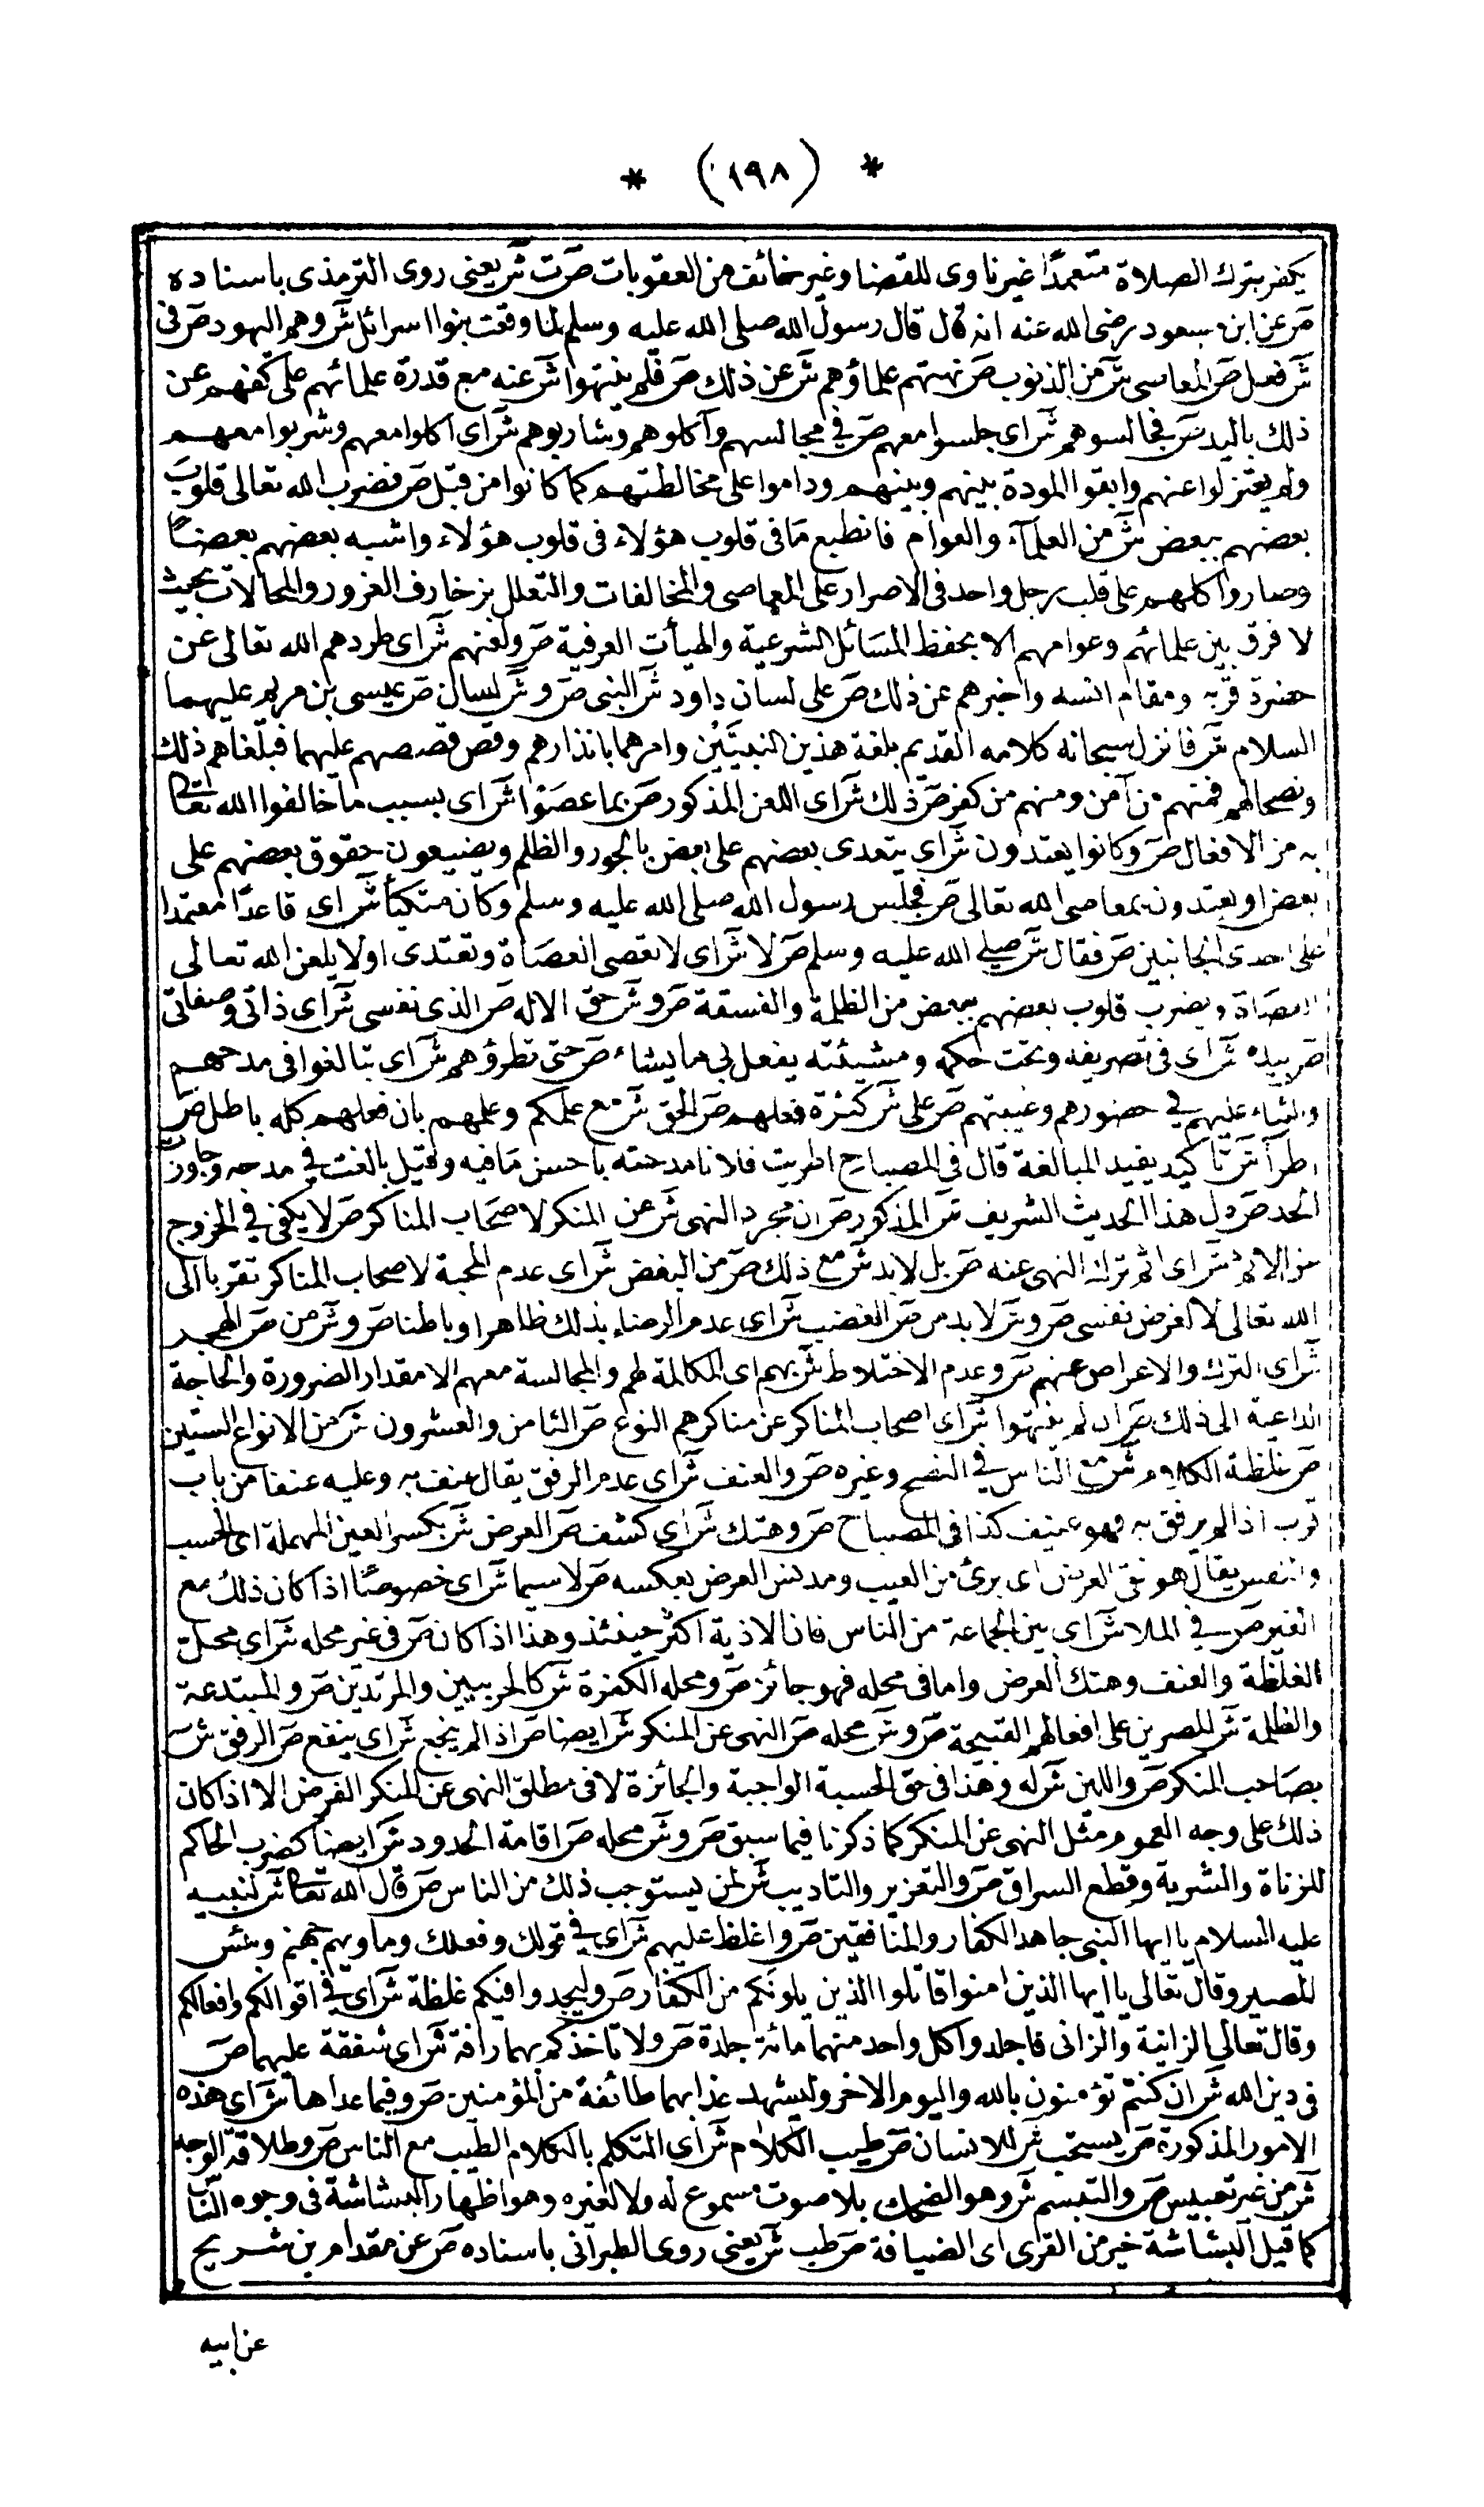 * (١٩٨) *
يكفر بترك الصلاة متعمدًا غير ناوى للقضا وغير خائف من العقوبات صَ ت شَ يعنى روى الترمذى باسناده
صَ عن ابن مسعود رضى الله عنه انه قال قال رسول الله صلى الله عليه وسلم لما وقعت بنوا اسرائل شَ وهم اليهود صَ فى
شَ فعل صَ المعاصى شَ من الذنوب صَ نهتهم علماؤهم شَ عن ذلك صَ فلم ينتهوا شَ عنه مع قدرة علمائهم على كفهم عن
ذلك باليد صَ فجالسوهم شَ اى جلسوا معهم صَ فى مجالسهم وآكلوهم وشاربوهم شَ اى اكلوا معهم وشربوا معهم
ولم يعتزلوا عنهم وابقوا المودة بينهم وبينهم وداموا على مخالطتهم كما كانوا من قبل صَ فضرب الله تعالى قلوب
بعضهم ببعض شَ من العلمآء والعوام فانطبع مَا فى قلوب هؤلاء فى قلوب هؤلاء واشبه بعضهم بعضًا
وصاروا كلهم على قلب رجل واحد فى الاصرار على المعاصى والمخالفات والتعلل بزخارف الغرور والمحالات بحيث
لا فرق بين علمائهم وعوامهم الا بحفظ المسَائل الشرعية والهيأت العرفية صَ ولعنهم شَ اى طردهم الله تعالى عن
حضرة قربه ومقام انسه واخبرهم عن ذلك صَ على لسان داود شَ النبى صَ و شَ لسان صَ عيسى بن مريم عليهما
السلام شَ فانزل سبحانه كلامه القديم بلغة هذين النبيّيْن وامرهما بانذارهم وقص قصصهم عليهما فبلغاهم ذلك
ونصحا لهم فمنهم من آمن ومنهم من كفر صَ ذلك شَ اى اللعن المذكور صَ بما عصَوْا شَ اى بسبب ما خالفوا الله تعالى
به من الافعال صَ وكانوا يعتدون شَ اى يتعدى بعضهم على بعض بالجور والظلم ويضيعون حقوق بعضهم على
بعض او يعتدون بمعاصى الله تعالى صَ فجلس رسول الله صلى الله عليه وسلم وكان متكيًأ شَ اى قاعدًا معتمدا
على احدى الجانبين صَ فقال شَ صلى الله عليه وسلم صَ لا شَ اى لا تعصى العصَاة وتعتدى اولا يلعن الله تعالى
العصَاة ويضرب قلوب بعضهم ببعض من الظلمة والفسقة صَ و شَ حق الاله صَ الذى نفسى شَ اى ذاتى وصفاتى
صَ بيده شَ اى فى تصريفه وتحت حكمه ومشيئته يفعل بى ما يشاء صَ حتى تطرؤهم شَ اى تبالغوا فى مدحهم
والثناء عليهم فى حضورهم وغيبتهم صَ على شَ كثرة فعلهم صَ الحق شَ مع علمكم وعلمهم بان فعلهم كله باطل صَ
اطرآ شَ تاكيد يفيد المبالغة قال فى المصباح اطريت فلانا مدحته باحسن مَا فيه وقيل بالغت فى مدحه وجاوزت
الحد صَ دل هذا الحديث الشريف شَ المذكور صَ ان مجرد النهى شَ عن المنكر لاصحَاب المناكر صَ لا يكفى فى الخروج
من الاثم شَ اى اثم ترك النهى عنه صَ بل لابد شَ مع ذلك صَ من البغض شَ اى عدم المحبة لاصحاب المناكر تقربا الى
الله تعالى لا لغرض نفسى صَ و شَ لابد من صَ الغضب شَ اى عدم الرضاء بذلك ظاهرا وباطنا صَ و شَ من صَ الهجر
شَ اى الترك والاعراض عنهم صَ وعدم الاختلاط شَ بهم اى المكالمة لهم والمجالسة معهم الا مقدار الضرورة والحاجة
الداعية الى ذلك صَ ان لم ينتهوا شَ اى اصحاب المناكر عن مناكرهم النوع صَ الثامن والعشرون شَ من الانواع الستين
صَ غلظة الكلام شَ مع الناس فى النصح وغيره صَ والعنف شَ اى عدم الرفق يقال عنف به وعليه عنفا من باب
قرب اذا لم يرفق به فهو عنيف كذا فى المصباح صَ وهتك شَ اى كشف صَ العرض شَ بكسر العين المهملة اى الحسب
والنفس يقال هو نقى العرض اى برئ من العيب ومدنس العرض بعكسه صَ لا سيما شَ اى خصوصًا اذا كان ذلك مع
الغير صَ فى الملا شَ اى بين الجماعة من الناس فان الاذية اكثر حينئذ وهذا اذا كان صَ فى غير محله شَ اى محل
الغلظة والعنف وهتك العرض واما فى محله فهو جائز صَ ومحله الكفرة شَ كالحربيين والمرتدين صَ والمبتدعة
والظلمة شَ المصرين على افعالهم القبيحة صَ و شَ محله صَ النهى عن المنكر شَ ايضا صَ اذا لم ينجع شَ اى ينفع صَ الرفق شَ
بصَاحب المنكر صَ واللين شَ له وهذا فى حق الحسبة الواجبة والجائزة لا فى مطلق النهى عن المنكر الفرض الا اذا كان
ذلك على وجه العموم مثل النهى عن المنكر كما ذكرنا فيما سبق صَ و شَ محله صَ اقامة الحدود شَ ايضا كضرب الحاكم
للزناة والشربة وقطع السراق صَ والتعزير والتاديب شَ لمن يستوجب ذلك من الناس صَ قال الله تعالى شَ لنبيه
عليه السلام يا ايها النبى جاهد الكفار والمنافقين صَ واغلظ عليهم شَ اى فى قولك وفعلك وماويهم جهنم وبئس
المصير وقال تعالى يا ايها الذين امنوا قاتلوا الذين يلونكم من الكفار صَ وليجدوا فيكم غلظة شَ اى فى اقوالكم وافعالكم
وقال تعالى الزانية والزانى فاجلدوا كل واحد منهما مائة جلدة صَ ولا تاخذكم بهما رافة شَ اى شفقة عليهما صَ
فى دين الله شَ ان كنتم تؤمنون بالله واليوم الاخر وليشهد عذابهما طائفة من المؤمنين صَ وفيما عداها شَ اى هذه
الامور المذكورة صَ يستحب شَ للانسان صَ طيب الكلام شَ اى المتكلم بالكلام الطيب مع الناس صَ وطلاقة الوجه
شَ من غير تعبيس صَ والتبسم شَ وهو الضحك بلا صوت مسموع له ولا لغيره وهو اظهار البشاشة فى وجوه الناس
كما قيل البشاشة خير من القرى اى الضيافة صَ طب شَ يعنى روى الطبرانى باسناده صَ عن مقدام بن شريح
عن ابيه